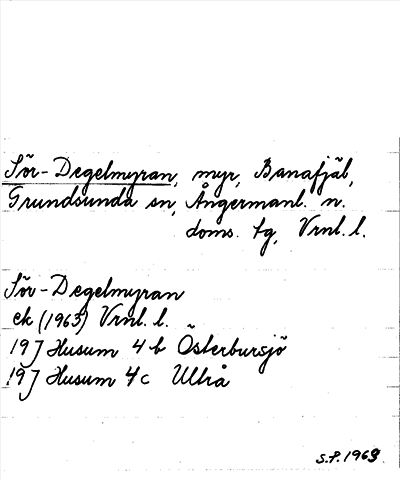 Sör-Degelmyran, myr, Banafjäl,
Grundsunda sn, Ångermanl. n.
doms. tg, Vrnl. l.
Sör-Degelmyran
ek (1963) Vrnl. l.
19J Husum 4b Österbursjö
19J Husum 4c Ullrå
S.P. 1963.